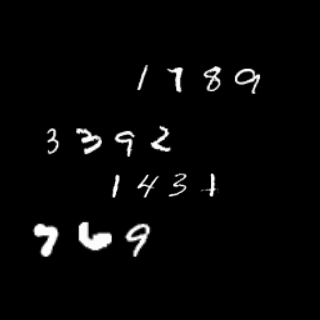 1789
3392
1431
769